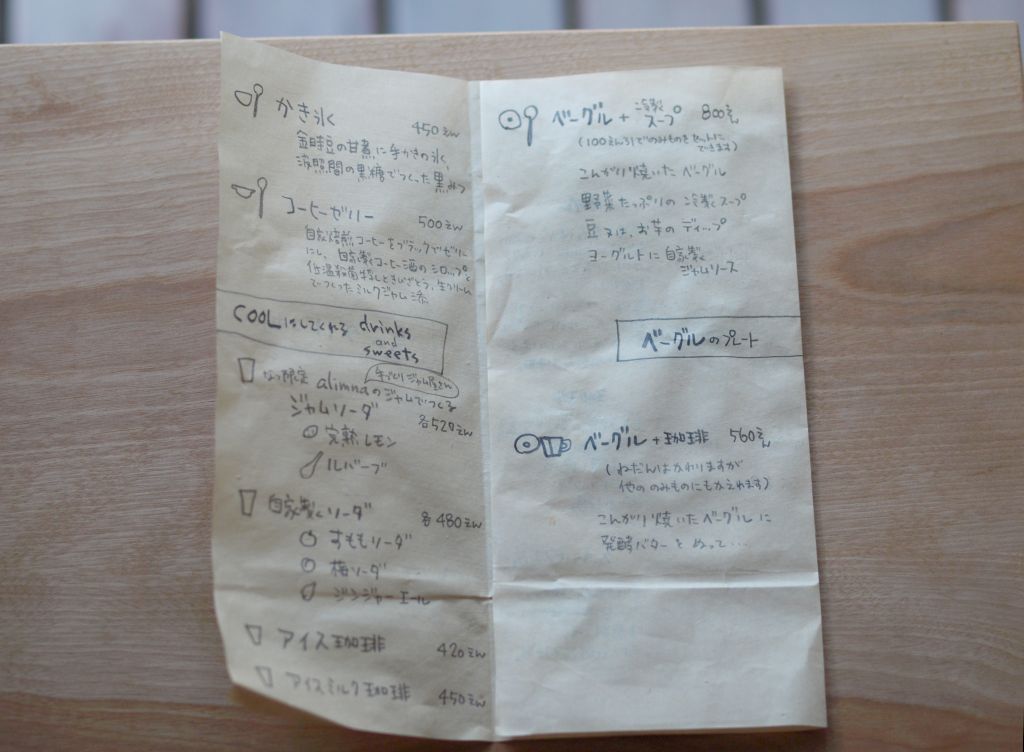 かき氷
450えん
金時豆の甘煮に手かきの氷、
波照間の黒糖でつくった黒みつ
コーヒーゼリー
500えん
自家焙煎コーヒーをブラックでゼリー
にし、自家製コーヒー酒のシロップと
低温殺菌牛乳ときびざとう、生クリーム
でつくったミルクジャム添
COOLにしてくれる drinks
and
sweets
手づくりジャム屋さん
なつ限定 alimnaのジャムでつくる
ジャムソーダ
各520えん
完熟レモン
ルバーブ
自家製ソーダ
各480えん
すももソーダ
梅ソーダ
ジンジャーエール
アイス珈琲 420えん
アイスミルク珈琲 450えん
ベーグル + 冷製スープ 800えん
(100えん引でのみものをセットに
できます)
こんがり焼いたベーグル
野菜たっぷりの冷製スープ
豆又は、お芋のディップ
ヨーグルトに自家製
ジャムソース
ベーグルのプレート
ベーグル + 珈琲 560えん
(ねだんはかわりますが
他ののみものにもかえれます)
こんがり焼いたベーグルに
発酵バターをぬって...